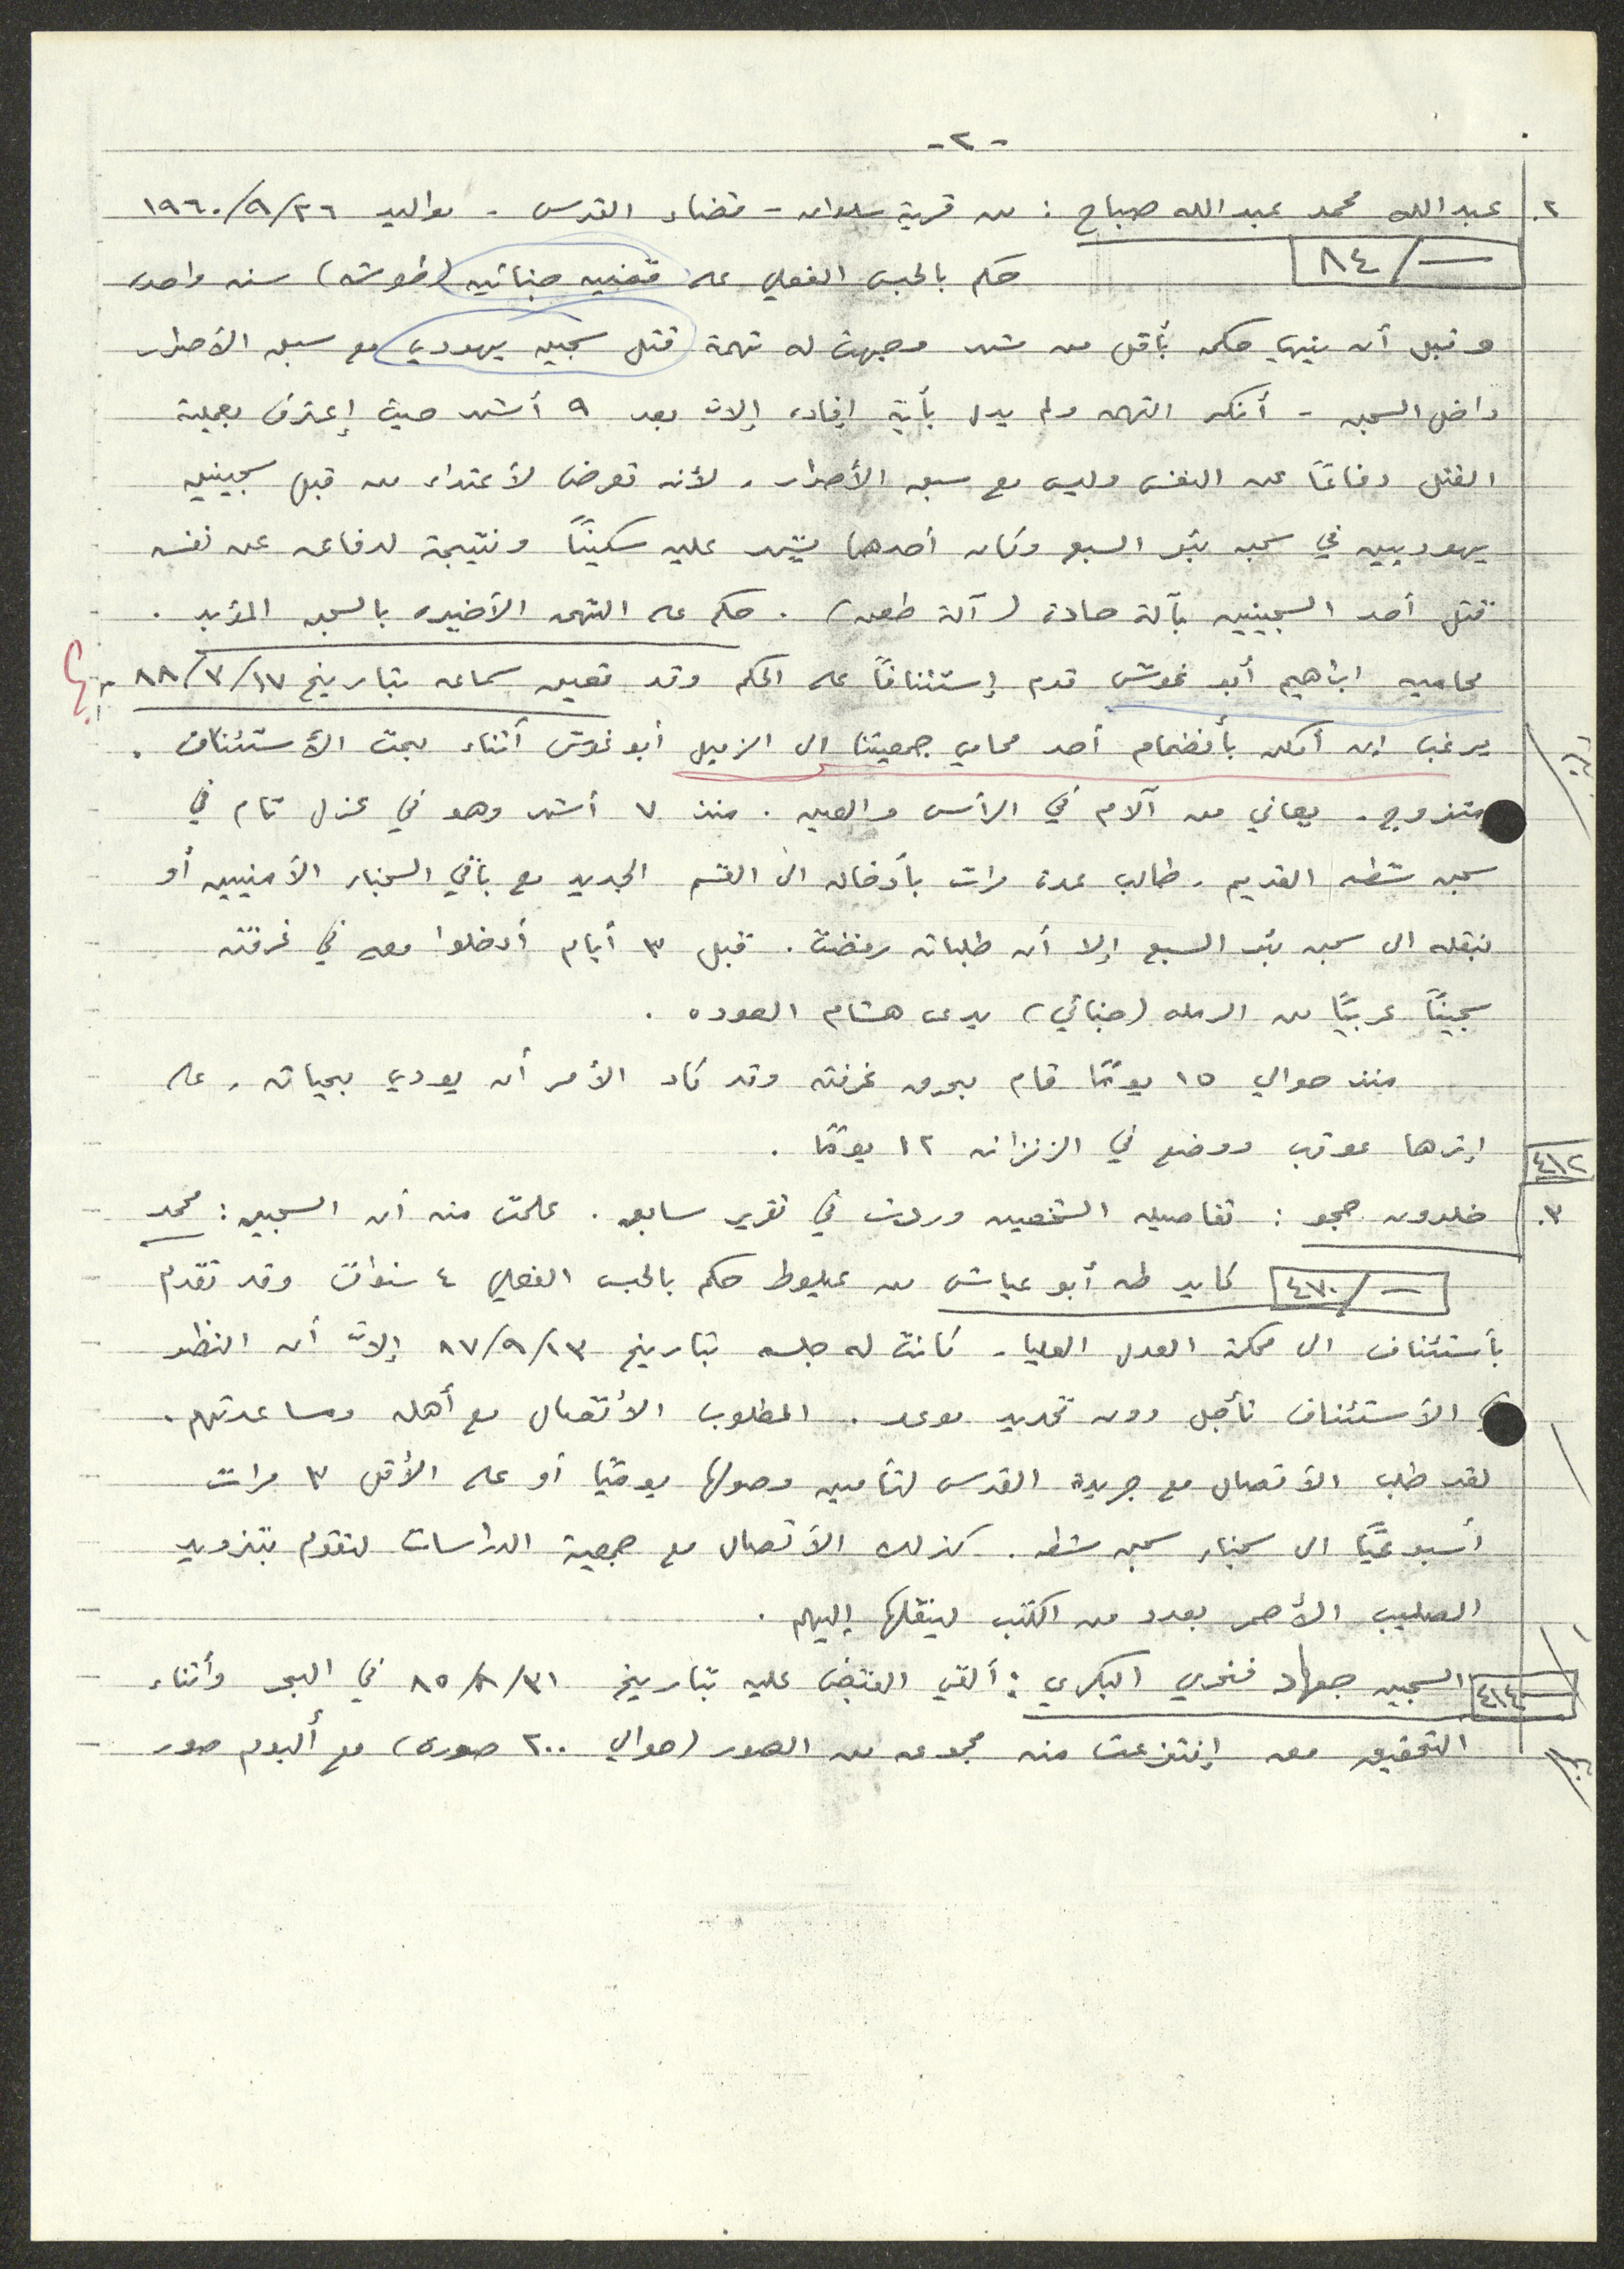 -٢-
٢. عبدالله محمد عبدالله صباح : من قرية سلوان - قضاء القدس - مواليد ١٩٦٠/٩/٢٦
٨٤/— حكم بالحبس الفعلي على قضيه جنائيه (طوشه) سنه واحده
وقبل أن ينهي حكمه بأقل من شهر وجهت له تهمة قتل سجين يهودي مع سبق الأصرار
داخل السجن - أنكر التهمه ولم يدل بأية إفاده إلا بعد ٩ أشهر حيث إعترف بعملية
القتل دفاعًا عن النفس وليس مع سبق الأصرار ، لأنه تعرض لأعتداء من قبل سجينين
يهوديين في سجن بئر السبع وكان أحدهما يشهر عليه سكينًا ونتيجة لدفاعه عن نفسه
قتل أحد السجينين بآلة حادة (آلة طعن) . حكم على التهمه الأخيره بالسجن المؤبد .
محاميه ابراهيم أبو غوش قدم إستئنافًا على الحكم وقد تعين سماعه بتاريخ ٨٨/٧/١٧
يرغب ان أمكن بأنضمام أحد محامي جمعيتنا الى الزميل أبو غوش أثناء بحث الأستئناف .
متزوج . يعاني من آلام في الرأس والعين . منذ ٧ أشهر وهو في عزل تام في
سجن شطه القديم . طالب عدة مرات بأدخاله الى القسم الجديد مع باقي السجناء الأمنيين أو
نقله الى سجن بئر السبع إلا أن طلباته رفضت . قبل ٣ أيام أدخلوا معه في غرفته
سجينًا عربيًا من الرمله (جنائي) يدعى هشام العوده .
منذ حوالي ١٥ يومًا قام بحرق غرفته وقد كاد الأمر أن يودي بحياته ، على
إثرها عوقب ووضع في الزنزانه ١٢ يومًا .
٤١٢
٣. خلدون حجو : تفاصيله الشخصيه وردت في تقرير سابق . علمت منه أن السجين : محمد
٤٧٠/— كايد طه أبو عياش من عيلوط حكم بالحبس الفعلي ٤ سنوات وقد تقدم
بأستئناف الى محكمة العدل العليا . كانت له جلسه بتاريخ ٨٧/٩/١٣ إلا أن النظر
في الأستئناف تأجل دون تحديد موعد . المطلوب الأتصال مع أهله ومساعدتهم .
لقد طلب الأتصال مع جريدة القدس لتأمين وصولها يوميًا أو على الأقل ٣ مرات
أسبوعيًا الى سجناء سجن شطه . كذلك الأتصال مع جمعية الدراسات لتقوم بتزويد
الصليب الأحمر بعدد من الكتب لينقلها إليهم .
٤١٤ السجين جهاد فخري البكري : ألقي القبض عليه بتاريخ ٨٥/٨/٣١ في البحر وأثناء
التحقيق معه إنتزعت منه مجموعه من الصور (حوالي ٢٠٠ صوره) مع ألبوم صور